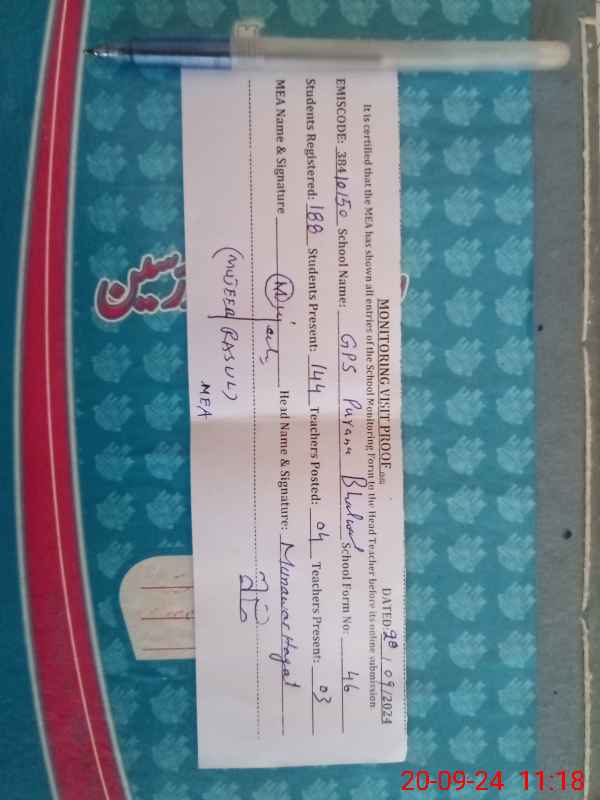 MONITORING VISIT PROOF
DATED: 20/09/2024
It is certified that the MEA has shown all entries of the School Monitoring Form to the Head Teacher before its online submission
EMISCODE: 38410150 School Name: GPS Purana Bhalwal School Form No: 46
Students Registered: 188 Students Present: 144 Teachers Posted: 04 Teachers Present: 03
MEA Name & Signature Head Name & Signature: Munawar Hayat
(MUJEEB RASUL)
MEA
20-09-24 11:18